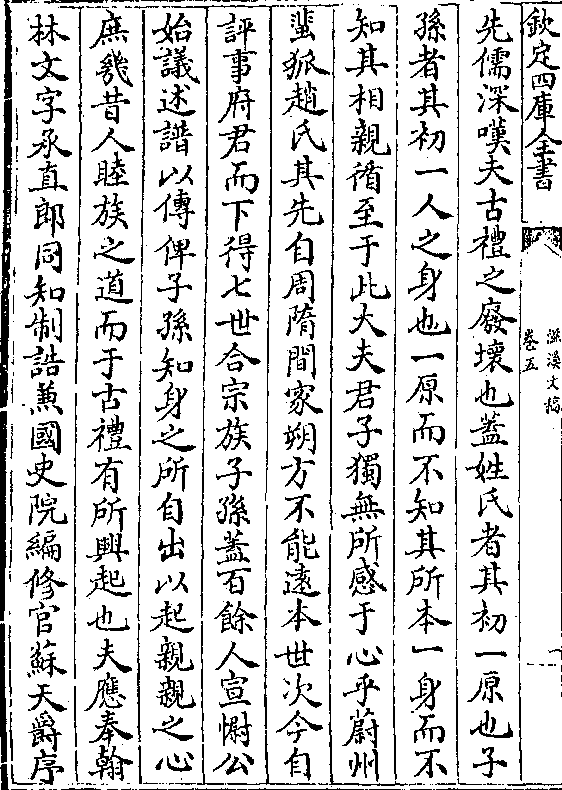 欽定四庫全書
滋溪文稿
卷五
一
先儒深嘆夫古禮之廢壞也蓋姓氏者其初一原也子
孫者其初一人之身也一原而不知其所本一身而不
知其相親循至于此大夫君子獨無所感于心乎蔚州
蜚狐趙氏其先自周隋間家朔方不能遠本世次今自
評事府君而下得七世合宗族子孫蓋百餘人宣慰公
始議述譜以傳俾子孫知身之所自出以起親親之心
庶幾昔人睦族之道而于古禮有所興起也夫應奉翰
林文字承直郎同知制誥兼國史院編修官蘇天爵序